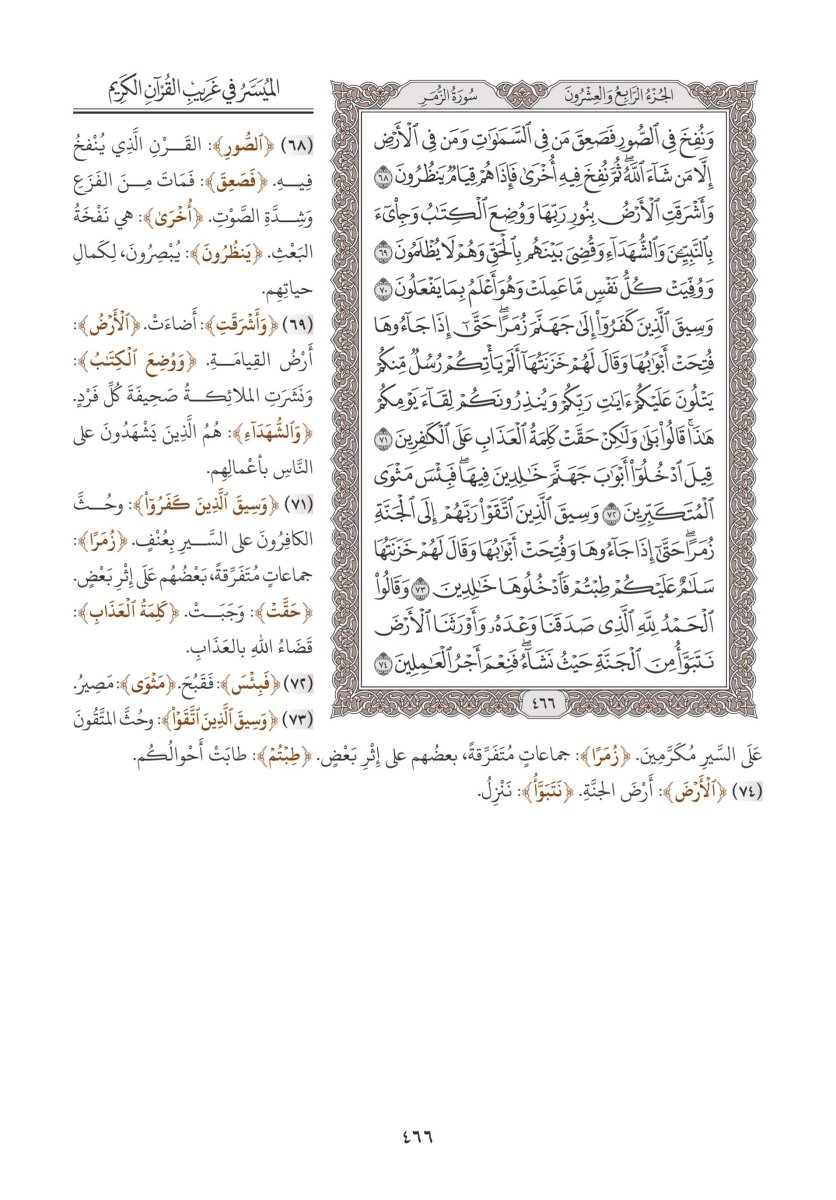 الجُزْءُ الرَّابِعُ وَالعِشْرُونَ
سُورَةُ الزُّمَرِ
وَنُفِخَ فِي ٱلصُّورِ فَصَعِقَ مَن فِي ٱلسَّمَٰوَٰتِ وَمَن فِي ٱلۡأَرۡضِ
إِلَّا مَن شَآءَ ٱللَّهُۖ ثُمَّ نُفِخَ فِيهِ أُخۡرَىٰ فَإِذَا هُمۡ قِيَامٞ يَنظُرُونَ ٦٨
وَأَشۡرَقَتِ ٱلۡأَرۡضُ بِنُورِ رَبِّهَا وَوُضِعَ ٱلۡكِتَٰبُ وَجِاْيٓءَ
بِٱلنَّبِيِّـۧنَ وَٱلشُّهَدَآءِ وَقُضِيَ بَيۡنَهُم بِٱلۡحَقِّ وَهُمۡ لَا يُظۡلَمُونَ ٦٩
وَوُفِّيَتۡ كُلُّ نَفۡسٖ مَّا عَمِلَتۡ وَهُوَ أَعۡلَمُ بِمَا يَفۡعَلُونَ ٧٠
وَسِيقَ ٱلَّذِينَ كَفَرُوٓاْ إِلَىٰ جَهَنَّمَ زُمَرًاۖ حَتَّىٰٓ إِذَا جَآءُوهَا
فُتِحَتۡ أَبۡوَٰبُهَا وَقَالَ لَهُمۡ خَزَنَتُهَآ أَلَمۡ يَأۡتِكُمۡ رُسُلٞ مِّنكُمۡ
يَتۡلُونَ عَلَيۡكُمۡ ءَايَٰتِ رَبِّكُمۡ وَيُنذِرُونَكُمۡ لِقَآءَ يَوۡمِكُمۡ
هَٰذَاۚ قَالُواْ بَلَىٰ وَلَٰكِنۡ حَقَّتۡ كَلِمَةُ ٱلۡعَذَابِ عَلَى ٱلۡكَٰفِرِينَ ٧١
قِيلَ ٱدۡخُلُوٓاْ أَبۡوَٰبَ جَهَنَّمَ خَٰلِدِينَ فِيهَاۖ فَبِئۡسَ مَثۡوَى
ٱلۡمُتَكَبِّرِينَ ٧٢ وَسِيقَ ٱلَّذِينَ ٱتَّقَوۡاْ رَبَّهُمۡ إِلَى ٱلۡجَنَّةِ
زُمَرًاۖ حَتَّىٰٓ إِذَا جَآءُوهَا وَفُتِحَتۡ أَبۡوَٰبُهَا وَقَالَ لَهُمۡ خَزَنَتُهَا
سَلَٰمٌ عَلَيۡكُمۡ طِبۡتُمۡ فَٱدۡخُلُوهَا خَٰلِدِينَ ٧٣ وَقَالُواْ
ٱلۡحَمۡدُ لِلَّهِ ٱلَّذِي صَدَقَنَا وَعۡدَهُۥ وَأَوۡرَثَنَا ٱلۡأَرۡضَ
نَتَبَوَّأُ مِنَ ٱلۡجَنَّةِ حَيۡثُ نَشَآءُۖ فَنِعۡمَ أَجۡرُ ٱلۡعَٰمِلِينَ ٧٤
٤٦٦
المُيَسَّرُ في غَرِيبِ القُرْآنِ الكَرِيمِ
(٦٨) ﴿ٱلصُّورِ﴾: القَرْنِ الَّذِي يُنْفَخُ
فِيهِ. ﴿فَصَعِقَ﴾: فَمَاتَ مِنَ الفَزَعِ
وَشِدَّةِ الصَّوْتِ. ﴿أُخۡرَىٰ﴾: هي نَفْخَةُ
البَعْثِ. ﴿يَنظُرُونَ﴾: يُبْصِرُونَ، لِكَمالِ
حياتِهم.
(٦٩) ﴿وَأَشۡرَقَتِ﴾: أَضاءَتْ. ﴿ٱلۡأَرۡضُ﴾:
أَرْضُ القِيامَةِ. ﴿وَوُضِعَ ٱلۡكِتَٰبُ﴾:
وَنَشَرَتِ الملائِكَةُ صَحِيفَةَ كُلِّ فَرْدٍ.
﴿وَٱلشُّهَدَآءِ﴾: هُمُ الَّذِينَ يَشْهَدُونَ على
النَّاسِ بأعْمالِهِم.
(٧١) ﴿وَسِيقَ ٱلَّذِينَ كَفَرُوٓاْ﴾: وحُثَّ
الكافِرُونَ على السَّيرِ بِعُنْفٍ. ﴿زُمَرًا﴾:
جماعاتٍ مُتَفَرِّقةً، بَعْضُهُم عَلَى إثْرِ بَعْضٍ.
﴿حَقَّتۡ﴾: وَجَبَتْ. ﴿كَلِمَةُ ٱلۡعَذَابِ﴾:
قَضَاءُ اللهِ بالعَذَابِ.
(٧٢) ﴿فَبِئۡسَ﴾: فَقَبُحَ. ﴿مَثۡوَى﴾: مَصِيرُ.
(٧٣) ﴿وَسِيقَ ٱلَّذِينَ ٱتَّقَوۡاْ﴾: وحُثَّ المتَّقُونَ
عَلَى السَّيرِ مُكَرَّمِينَ. ﴿زُمَرًا﴾: جماعاتٍ مُتَفَرِّقةً، بعضُهم على إثْرِ بَعْضٍ. ﴿طِبۡتُمۡ﴾: طابَتْ أَحْوالُكُم.
(٧٤) ﴿ٱلۡأَرۡضَ﴾: أَرْضَ الجنَّةِ. ﴿نَتَبَوَّأُ﴾: نَنْزِلُ.
٤٦٦